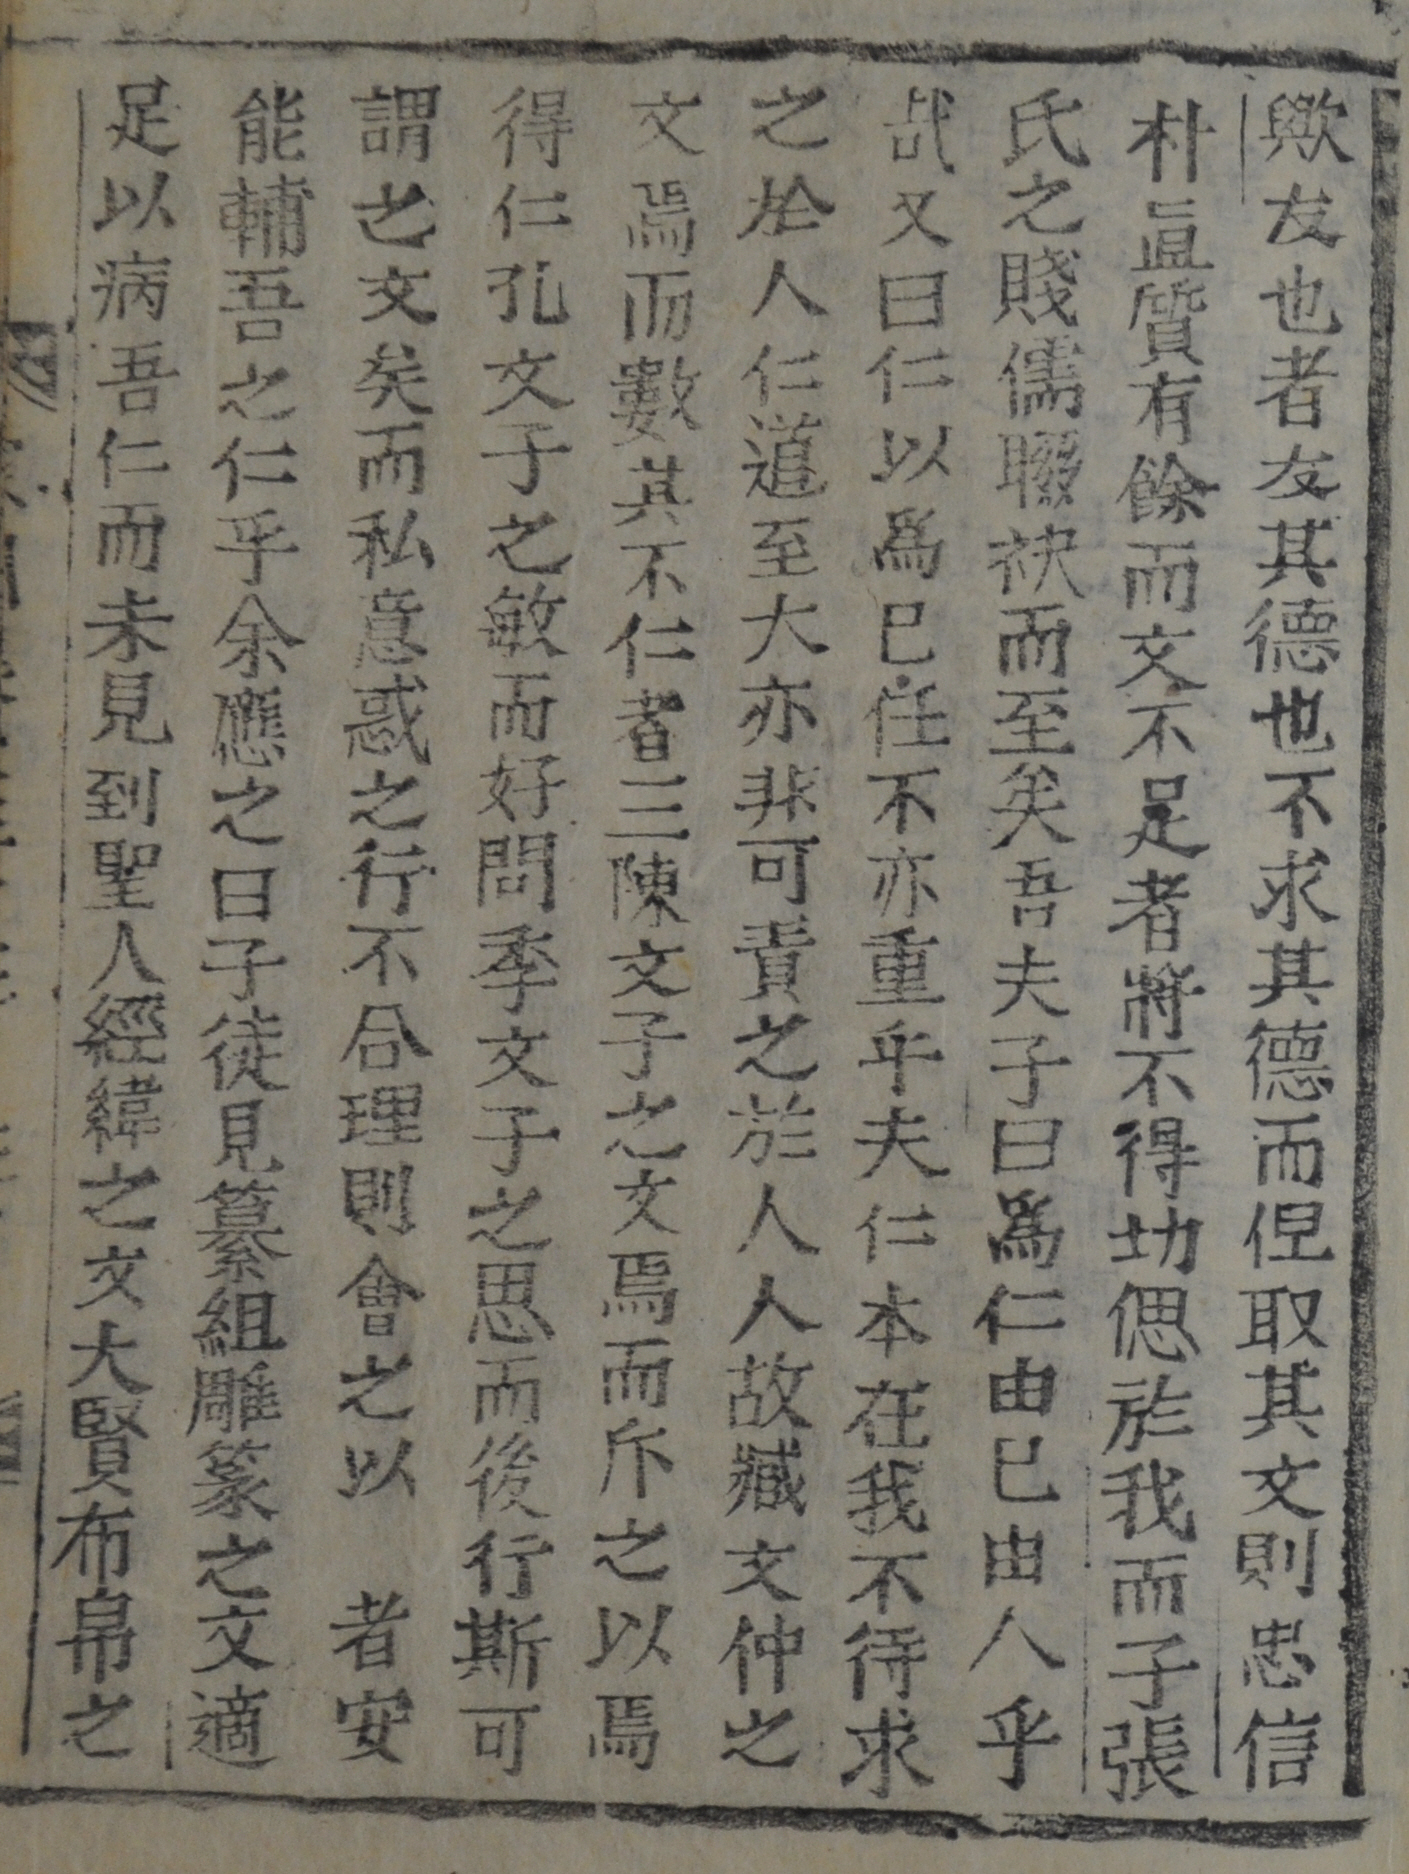 歟友也者友其德也不求其德而但取其文則忠信
朴直質有餘而文不足者將不得切偲於我而子張
氏之賤儒聯袂而至矣吾夫子曰爲仁由已由人乎
哉又曰仁以爲已任不亦重乎夫仁本在我不待求
之於人仁道至大亦非可責之於人人故臧文仲之
文焉而數其不仁者三陳文子之文焉而斥之以焉
得仁孔文子之敏而好問季文子之思而後行斯可
謂之文矣而私意惑之行不合理則會之以 者安
能輔吾之仁乎余應之曰子徒見纂組雕篆之文適
足以病吾仁而未見到聖人經緯之文大賢布帛之